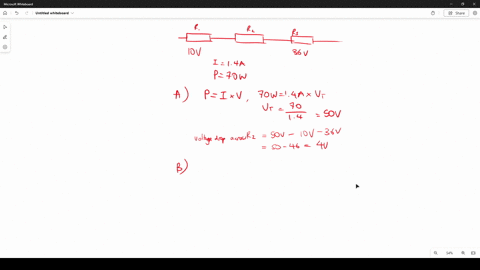 Microsoft Whiteboard
Untitled whiteboard
Share
R₁ R₂ R₃
10V 36V
I = 1.4A
P = 70W
A) P = I × V, 70W = 1.4A × V_T
V_T = 70/1.4 = 50V
voltage drop across R₂ = 50V - 10V - 36V
= 50 - 46 = 4V
B)